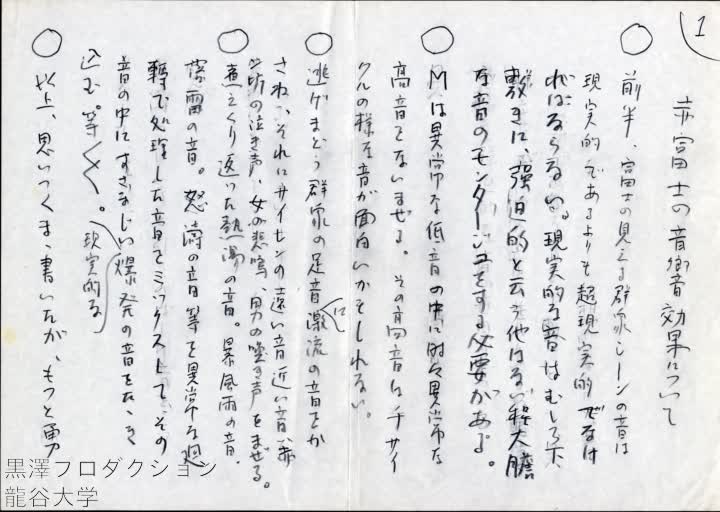 1
赤富士の音響効果について
○前半、富士の見える群衆シーンの音は
現実的であるよりも超現実的でなけ
ればならない。現実的な音はむしろ下
敷きに、強迫的と云う他はない程大胆
な音のモンタージュをする必要がある。
○Mは異常な低音の中に時々異常な
高音をないまぜる。その高音はチサイ
クルの様な音が面白いかもしれない。
○逃げまどう群衆の足音に激流の音をか
さね、それにサイレンの遠い音近い音、赤
ん坊の泣き声、女の悲鳴、男の喚き声をまぜる。
○煮えくり返った熱湯の音。暴風雨の音。
落雷の音。怒濤の音等を異常な廻
転で処理した音をミックスして、その
音の中にすさまじい爆発の音をたゝき
込む。等々。現実的な
○以上、思いつくまゝ書いたが、もっと勇
黒澤プロダクション
龍谷大学